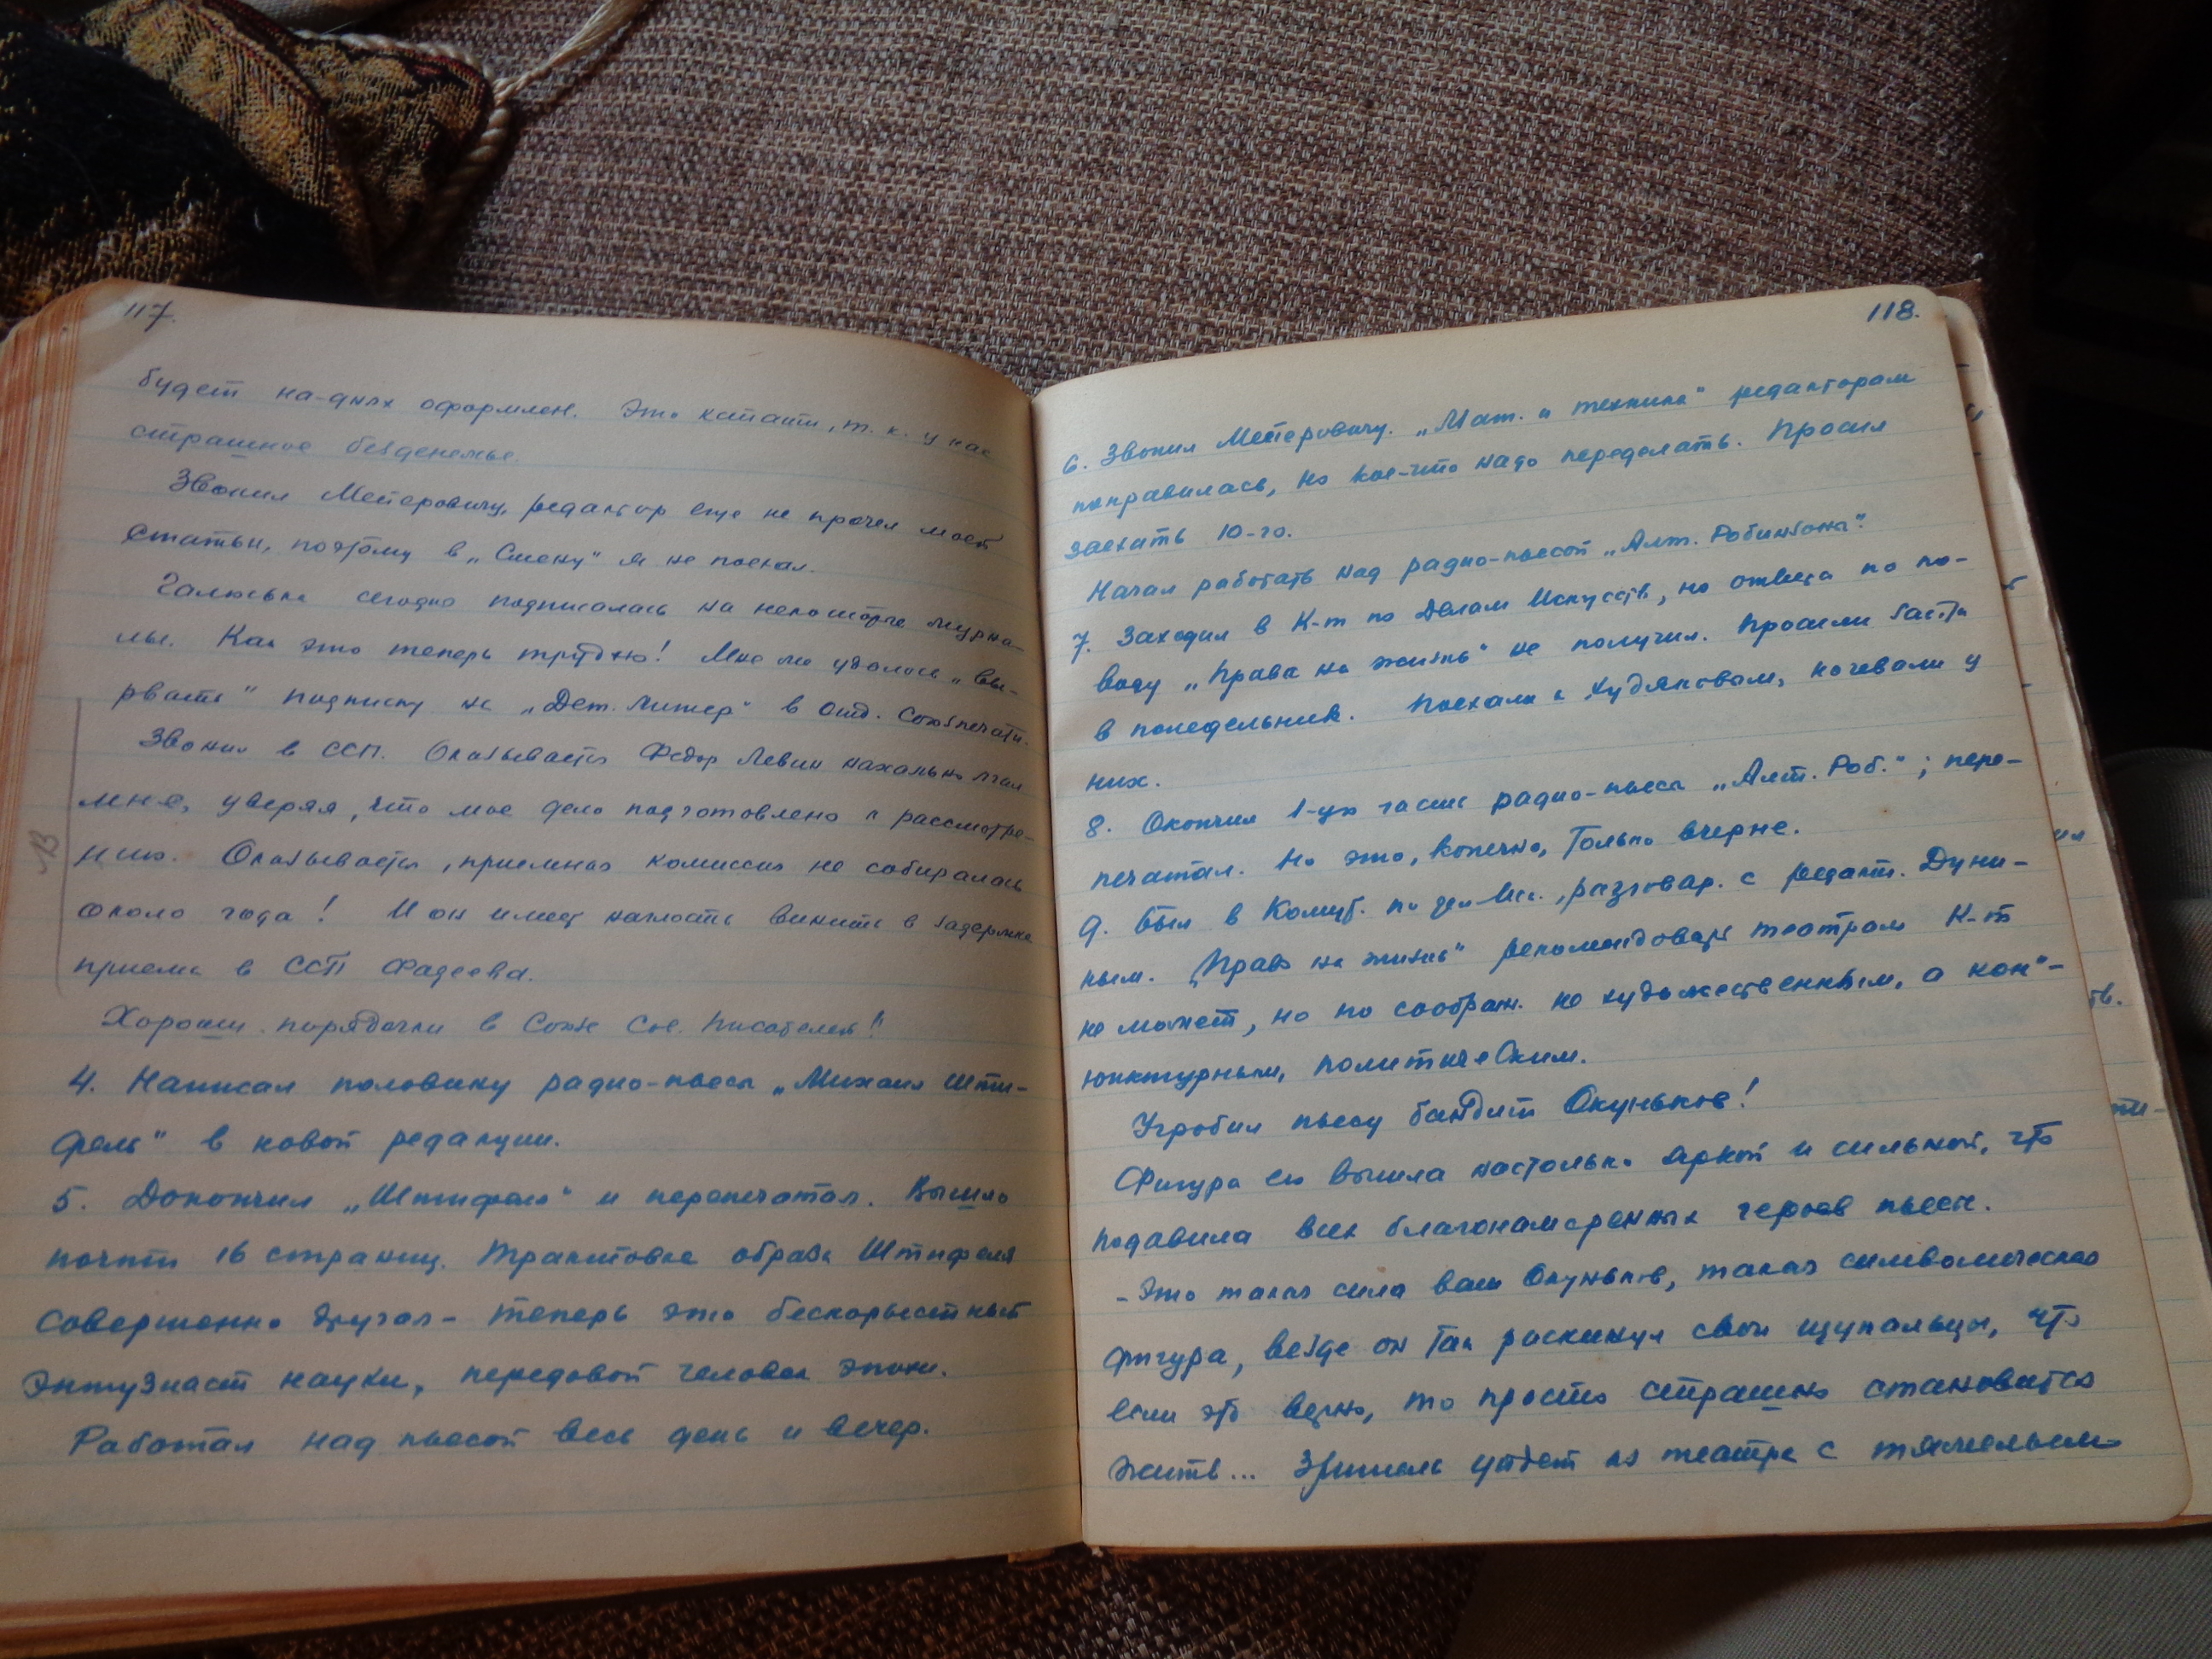 117.
будет на-днях оформлен. Это кстати, т. к. у нас
страшное безденежье.
Звонил Мейеровичу, редактор еще не прочел моей
статьи, поэтому в „Смену" я не поехал.
Галюська сегодня подписалась на некоторые журна-
лы. Как это теперь трудно! Мне не удалось „вы-
рвать" подписку на „Дет. Литер" в отд. Союзпечати.
Звонил в ССП. Оказывается Федор Левин нахально лгал
мне, уверяя, что мое дело подготовлено к рассмотре-
нию. Оказывается, приемная комиссия не собиралась
около года! И он имел наглость винить в задержке
приема в ССП Фадеева.
Хороши порядочки в Союзе Сов. Писателей!!
4. Написал половину радио-пьесы „Михаил Шти-
фель" в новой редакции.
5. Докончил „Штифеля" и перепечатал. Вышло
почти 16 страниц. Трактовка образа Штифеля
совершенно другая – теперь это бескорыстный
энтузиаст науки, передовой человек эпохи.
Работал над пьесой весь день и вечер.
118.
6. Звонил Мейеровичу. „Мат. и техника" редакторам
понравилась, но кое-что надо переделать. Просил
заехать 10-го.
Начал работать над радио-пьесой „Алт. Робинзона".
7. Заходил в К-т по Делам Искусств, но ответа по по-
воду „Права на жизнь" не получил. Просили зайти
в понедельник. Поехали к Худяковым, ночевали у
них.
8. Окончил 1-ую часть радио-пьесы „Алт. Роб."; пере-
печатал. Но это, конечно, только вчерне.
9. Был в Комит. по дел. Иск., разговар. с редакт. Дуни-
ным. „Право на жизнь" рекомендовать театрам К-т
не может, но по соображ. не художественным, а конъ-
юнктурным, политическим.
Угробил пьесу бандит Окуньков!
Фигура его вышла настолько яркой и сильной, что
подавила всех благонамеренных героев пьесы.
– Это такая сила ваш Окуньков, такая символическая
фигура, везде он так раскинул свои щупальцы, что
если это верно, то просто страшно становится
жить... Зритель уйдет из театра с тяжелым